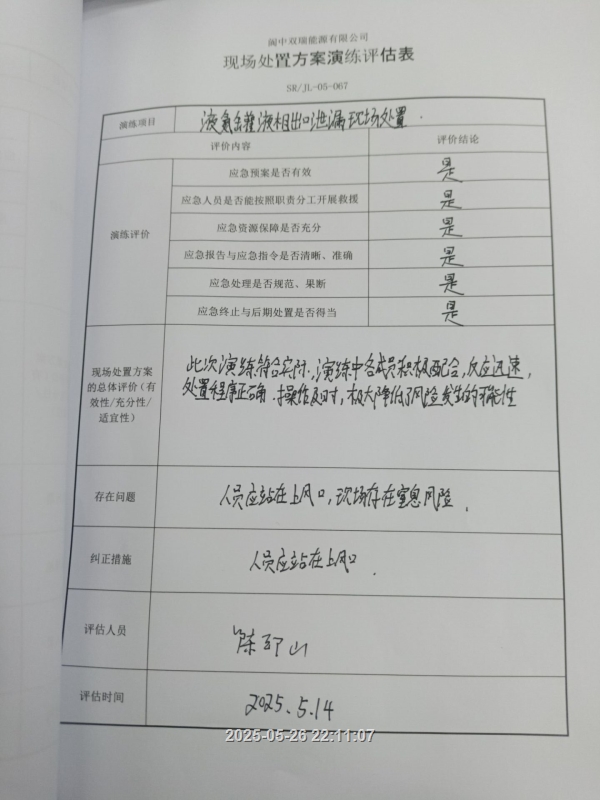 阆中双瑞能源有限公司
现场处置方案演练评估表
SR/JL-05-067
演练项目 液氮储罐液相出口泄漏现场处置.
评价内容 评价结论
演练评价
应急预案是否有效 是
应急人员是否能按照职责分工开展救援 是
应急资源保障是否充分 是
应急报告与应急指令是否清晰、准确 是
应急处理是否规范、果断 是
应急终止与后期处置是否得当 是
现场处置方案
的总体评价(有
效性/充分性/
适宜性)
此次演练符合实际.演练中各成员积极配合,反应迅速,
处置程序正确.操作及时,极大降低了风险发生的可能性
存在问题 人员应站在上风口,现场存在窒息风险.
纠正措施 人员应站在上风口.
评估人员 陈 山
评估时间 2025.5.14
2025-05-26 22:11:07